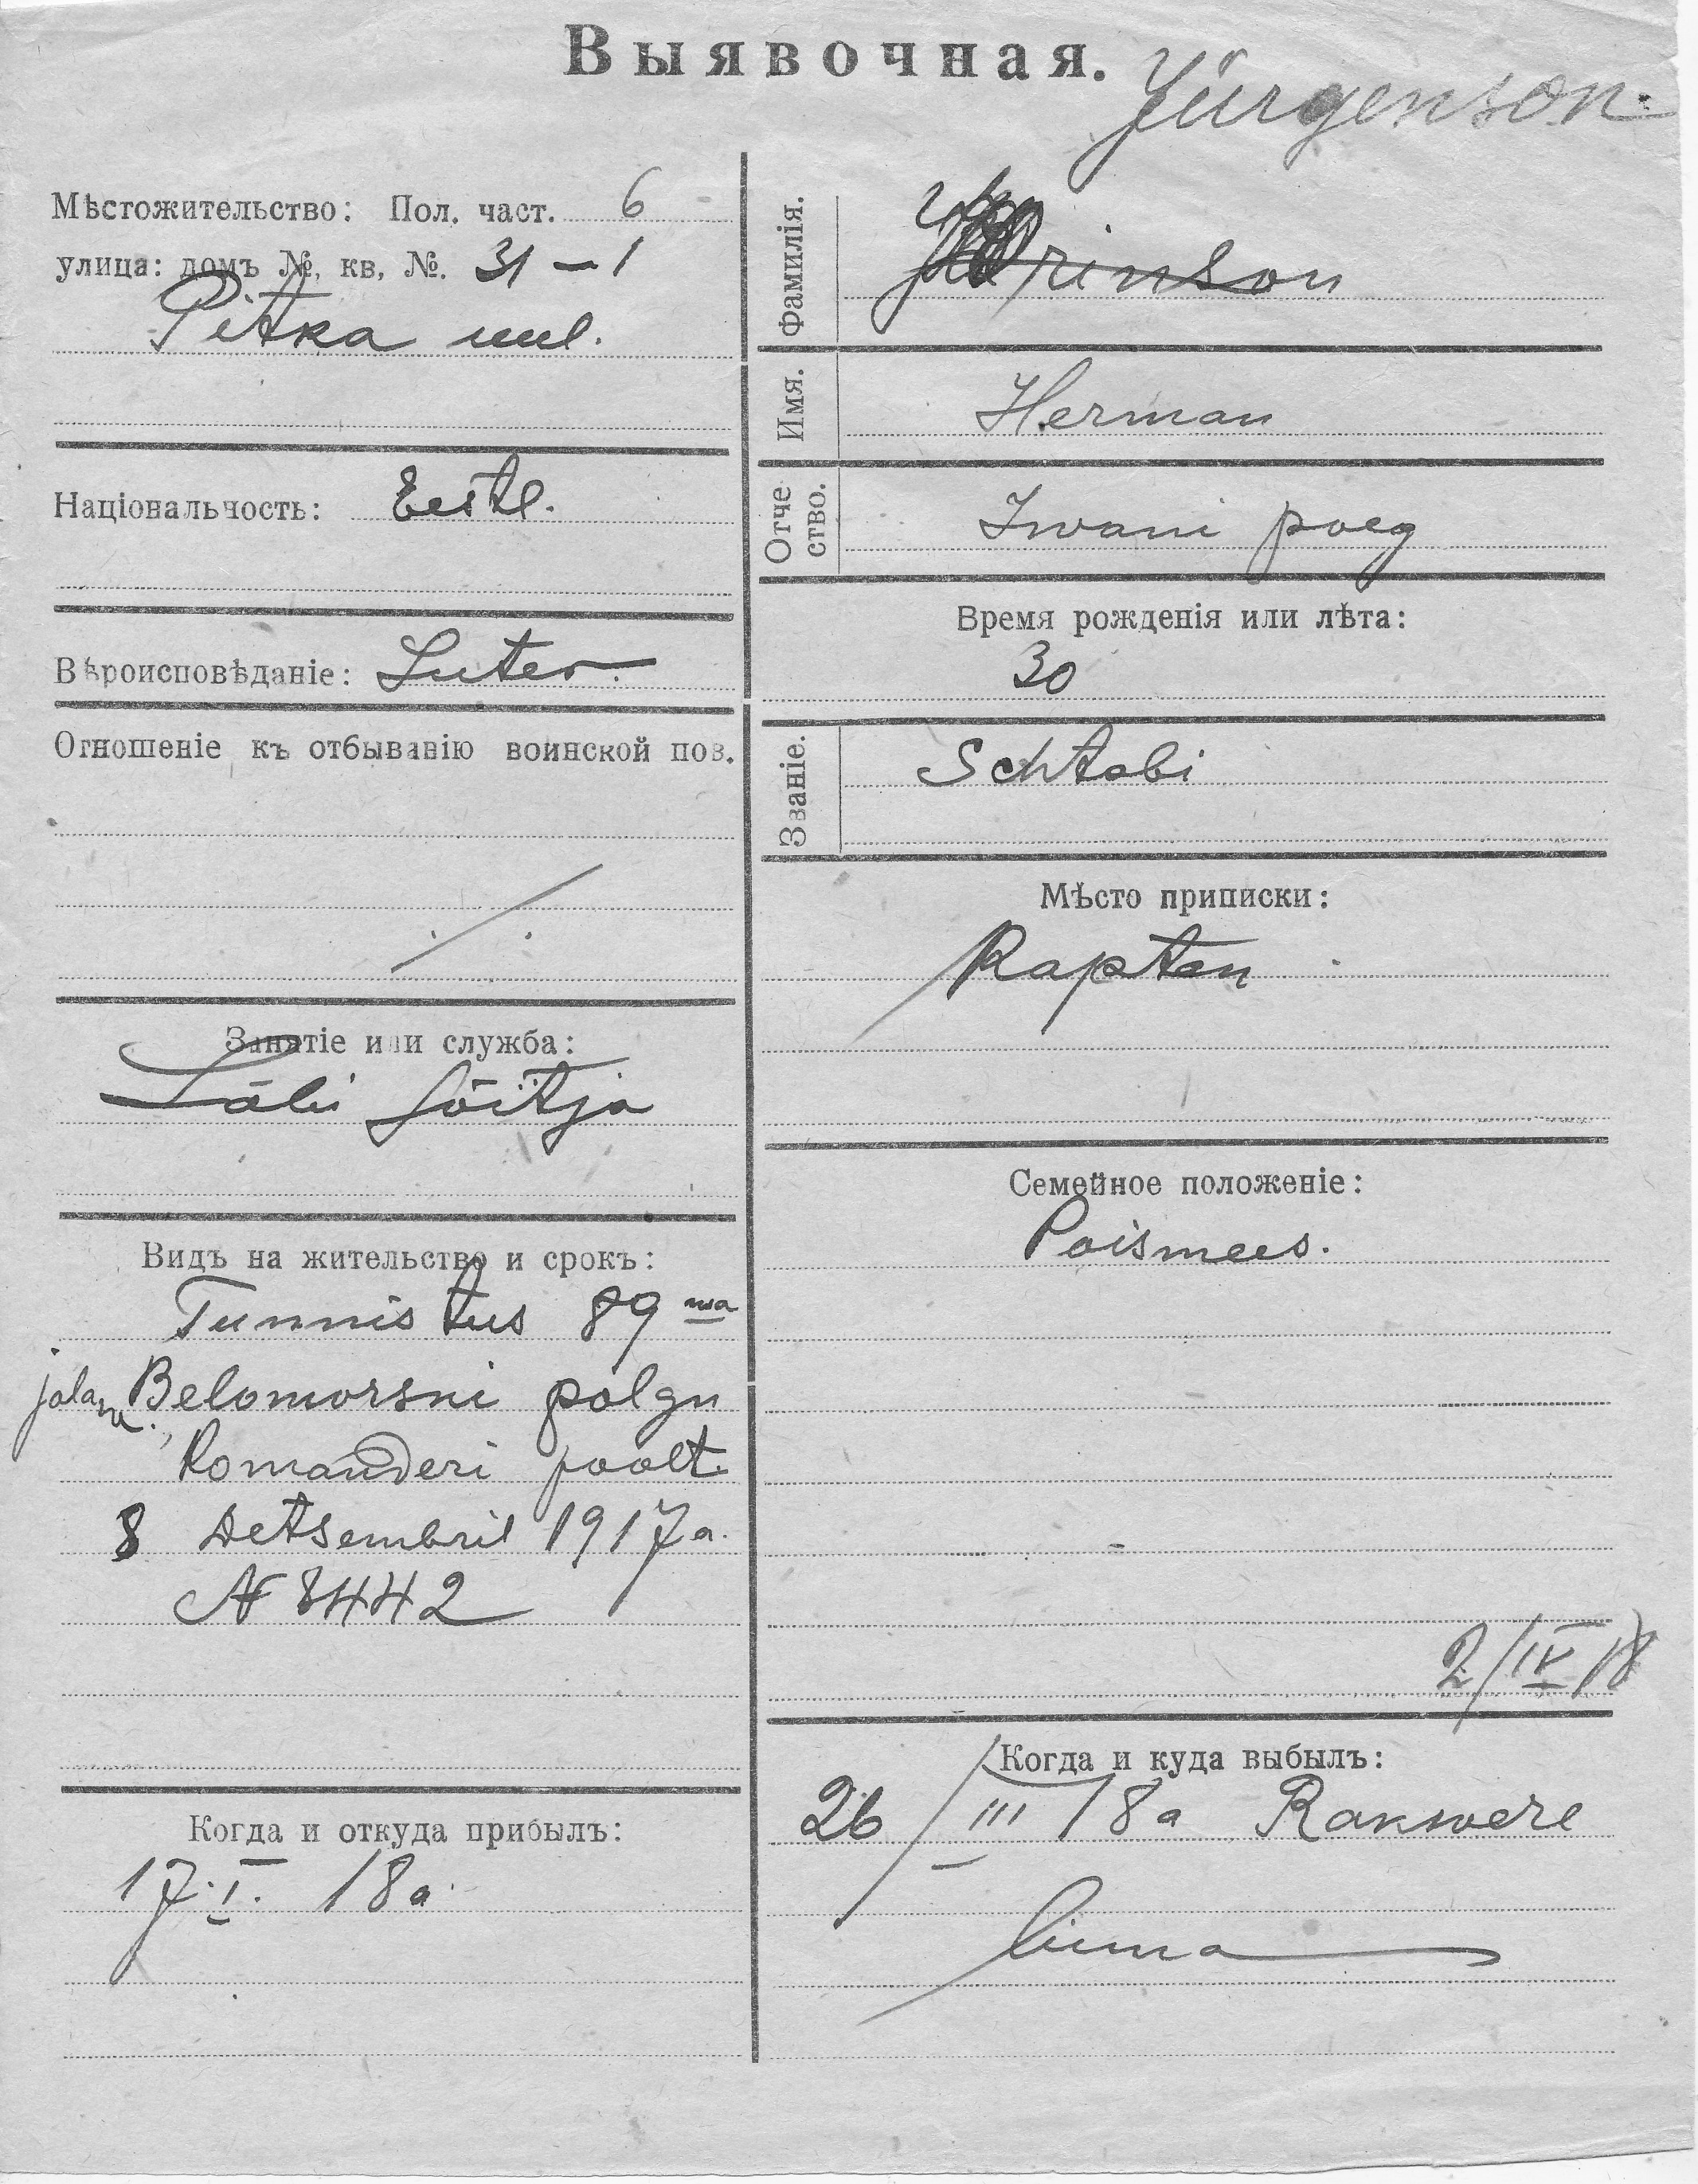 Выявочная.
Jürgenson.
Мѣстожительство: Пол. част. 6
улица: домъ №, кв, №. 31 – 1
Pitka uul.
Національность: Eestl.
Вѣроисповѣданіе: Luter.
Отношеніе къ отбыванію воинской пов.
Занятіе или служба:
Läbi sõitja
Видъ на жительство и срокъ:
Tunnistus 89 ma
jalaw. Belomorski polgu
Komanderi poolt.
8 Detsembril 1917 a.
№ 8442
Когда и откуда прибылъ:
17. I. 18 a.
Фамилія. rinson
Имя. Herman
Отче
ство. Iwani poeg
Время рожденія или лѣта:
30
Званіе. Schtabi
Мѣсто приписки:
Kapten
Семейное положеніе:
Poismees.
2/IV 18
Когда и куда выбылъ:
26/III 18 a Rakwere
linna